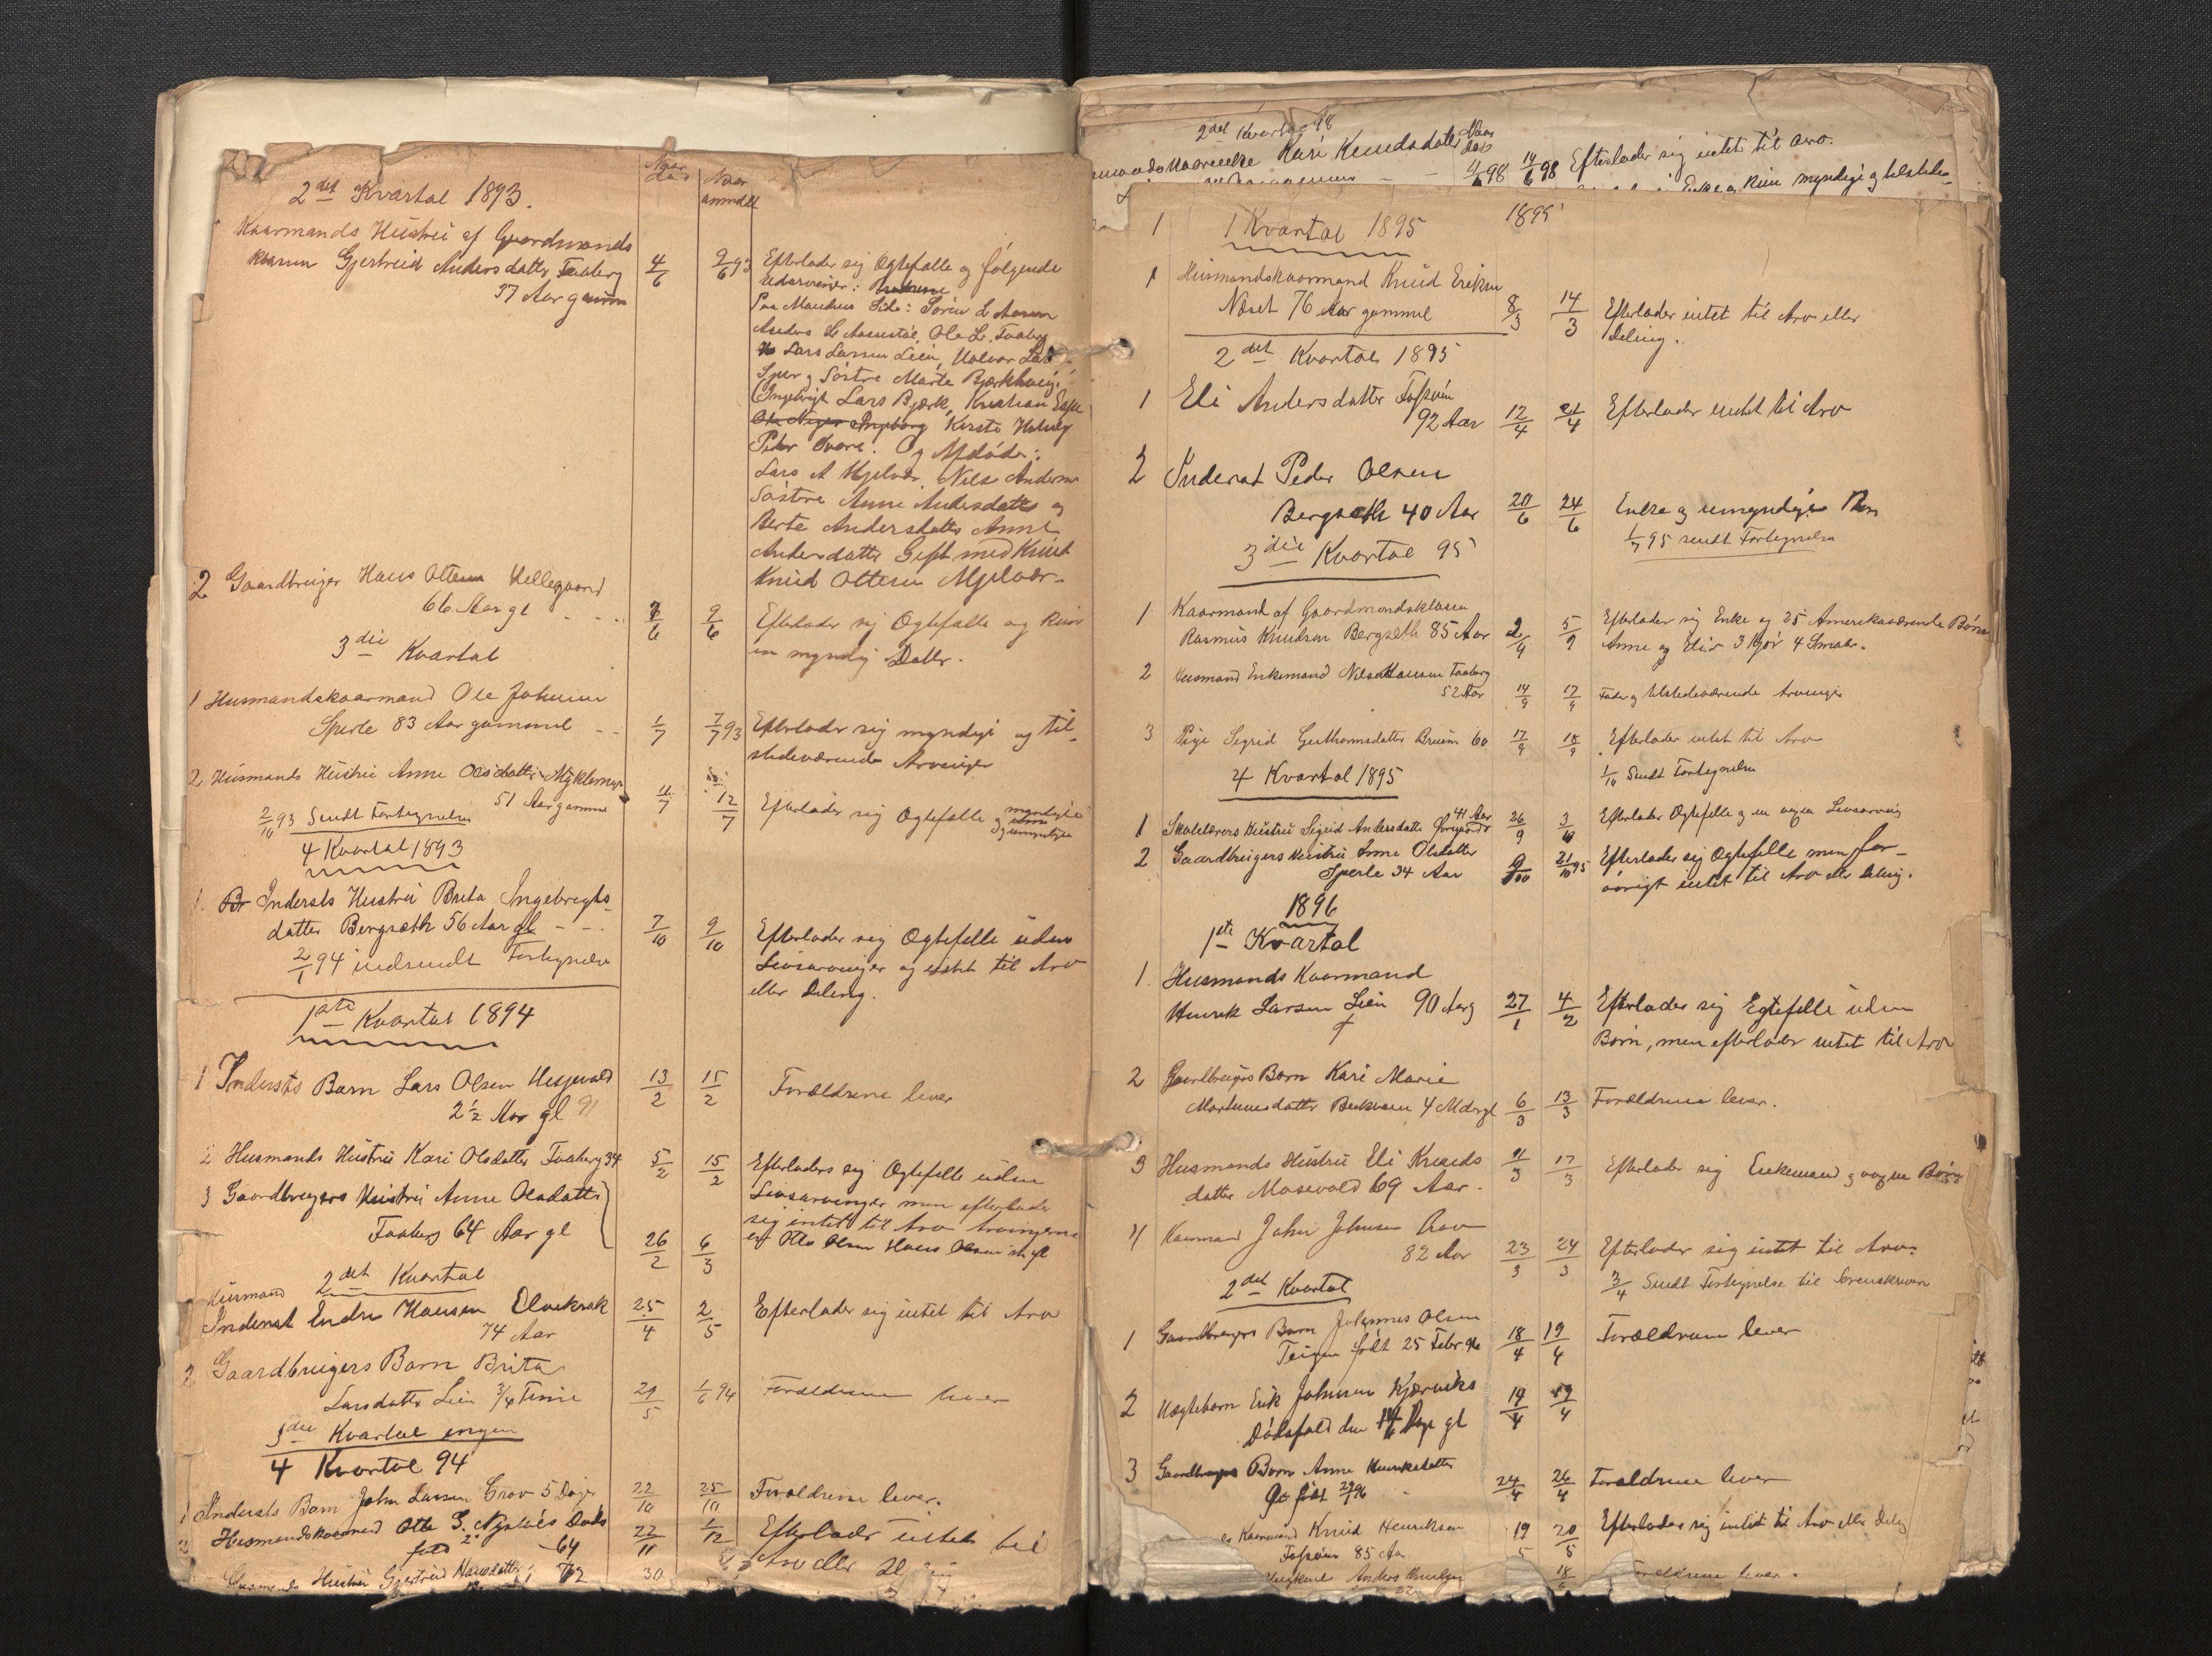 Naar død
Naar anmeldt
2det Kvartal 1893.
Kaarmands Hustru af Gaardmands
Gjertrud Andersdatter Faaberg
4/6 9/6 93 Efterlader sig Ægtefælle og følgende
77 Aar gammel
Udarvinger:
Paa Mandens Side: Søren L Aasen
Anders L Aasestøl, Ole L. Faaberg
Lars Larsen Lien, Halvor
og Søstre Marte Bjørkhaug
Ingebrigt Lars Bjørk, Kristian
Kirsti
Peder Og Afdøde:
Lars A Mjelvær, Nils Anderse
Søstre Anne Andersdatter og
Berte Andersdatter Anne
Andersdatter Gift med Knut
Knud Ottesen Mjelvær
2 Gaardbruger Hans Ottesen Hellegaard
66 Aar gl 9/6 Efterlader sig Ægtefælle og Kun
en myndig Datter.
3die Kvartal
1 Husmandskaarmand Ole Johnsen
Sperle 83 Aar gammel 1/7 7/7 93 Efterlader sig myndige og til-
stedeværende Arvinger
2 Husmands Hustru Anne Olsdatter Myklemyr
51 Aar gamme 11/7 12/7 Efterlader sig Ægtefælle og myndige
og umyndige
2/10 93 Sendt Fortegnelse
4 Kvartal 1893
1. Indersts Hustru Brita Ingebregts-
datter Bergsæth 56 Aar gl 7/10 9/10 Efterlader sig Ægtefelle uden
Livsarvinger og intet til Arv
eller Deling.
2/1 94 indsendt Fortegnelse
1ste Kvartal 1894
1 Indersts Barn Lars Olsen Hesjevold
2½ Aar gl 91 13/2 15/2 Forældrene lever
2 Husmands Hustru Kari Olsdatter Faaberg 34 5/2 15/2 Efterladers sig Ægtefelle uden
Livsarvinger men efterlader
sig intet til Arv Arvingerne
3 Gaardbrugers Hustru Anne Olsdatter
Faaberg 64 Aar gl 26/2 6/3 er Otto Olsen Hans Olsen
2det Kvartal
Husmand
Inderst Endre Hansen Elvekrok 25/4 2/5 Efterlader sig intet til Arv
74 Aar
2 Gaardbrugers Barn Brita
Larsdatter Lien 3/4 Time 29/5 1/6 94 Forældrene lever
3die Kvartal ingen
4 Kvartal 94
1 Indersts Barn John Larsen Crov 5 Dager 22/10 25/10 Forældrene lever.
2 Husmandskaarmand Otto S. Døds
64 22/11 1/12 Efterlader intet til
Arv eller
Husmands Hustru Gjertrud Hansdatter 72 30
2det Kvartal 98
Kari Knudsdatter
Naar død
98 14/6 98 Efterlader sig intet til Arv.
Kun myndige og tilstede-
1 1 Kvartal 1895 1895
1 Husmandskaarmand Knud Eriksen
Næset 76 Aar gammel 8/3 14/3 Efterlader intet til Arv eller
Deling.
2det Kvartal 1895
1 Eli Andersdatter Fosssøen
92 Aar 12/4 21/4 Efterlader intet til Arv
2 Inderst Peder Olsen
Bergseth 40 Aar 20/6 24/6 Enke og umyndige Børn
1/7 95 sendt Fortegnelse
3die Kvartal 95
1 Kaarmand af Gaardmandsklasen
Rasmus Knudsen Bergseth 85 Aar 2/9 5/9 Efterlader sig Enke og 25 Amerikaværende Børn
Anne og 3 Kjør 4 Smaler.
2 Husmand Enkemand Nils Hansen Faaberg
52 Aar 14/9 17/9 Fader og tilstedeværende Arvinger
3 Pige Sigrid Guthormsdatter Bruem 60 17/9 18/9 Efterlader intet til Arv
1/10 Sendt Fortegnelse
4 Kvartal 1895
1 Skolelærers Hustru Sigrid Andersdatter 41 Aar 26/9 3/10 Efterlader Ægtefelle og en Livsarving
2 Gaardbrugers Hustru Anne Olsdatter
Sperle 34 Aar 21/10 95 Efterlader sig Ægtefelle men for-
øvrigt intet til Arv eller Deling.
1896
1ste Kvartal
1 Husmands Kaarmand
Henrik Larsen Lien 90 Aar 27/1 4/2 Efterlader sig Egtefelle uden
Børn, men efterlader intet til Arv
2 Gaardbrugers Barn Kari Marie
Martinusdatter Bukveen 4 Mdr gl 6/3 13/3 Forældrene lever.
3 Husmands Hustru Eli Knuds
datter Mosevold 69 Aar. 11/3 17/3 Efterlader sig Enkemand og voxne Børn
4 Kaarmand John Johnsen Crov
82 Aar 23/3 24/3 Efterlader sig intet til Arv.
3/4 Sendt Fortegnelse til Sorenskriveren
2det Kvartal
1 Gaardbrugers Barn Johannes Olsen
Teigen født 25 Febr. 96 18/4 19/4 Forældrene lever
2 Uægtebarn Erik Johnsen Kjærviks
Dødsfald den Dage gl 19/4 19/4
3 Gaardbrugers Barn Anne Henriksdatter
født 96 24/4 26/4 Forældrene lever
Kaarmand Knud Henriksen
Fosssøen 85 Aar 19/5 20/5 Efterlader sig intet til Arv eller Deling
Ungkarl Anders Knudsen 18 Forældrene lever.
22